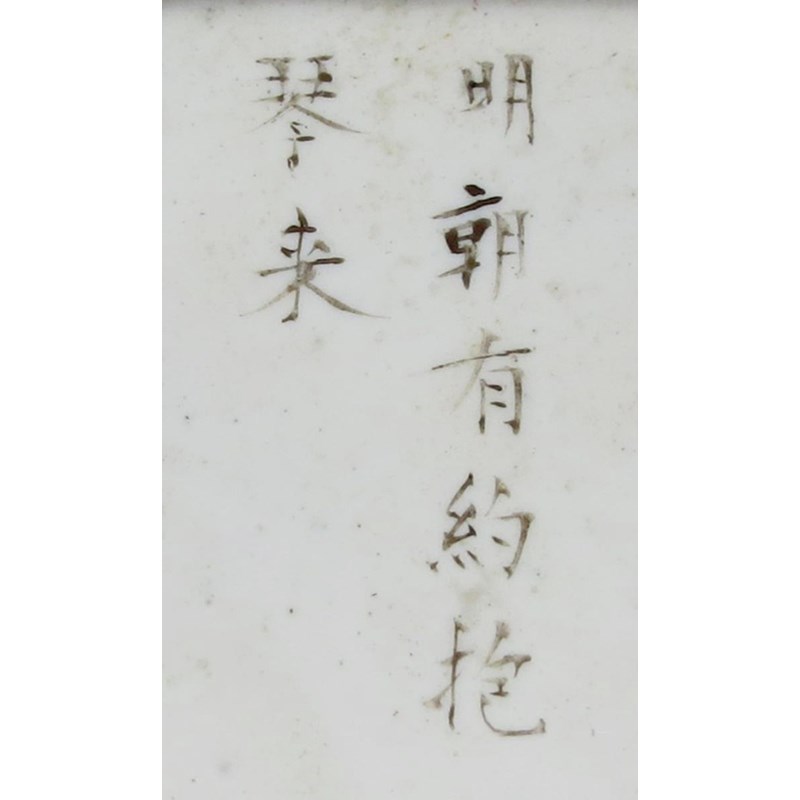 明朝有約抱
琴来